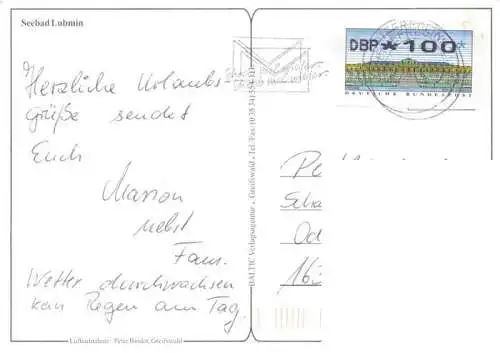 Seebad Lubmin
Herzliche Urlaubs-
grüße sendet
Euch
Marion
nebst
Fam.
Wetter durchwachsen
kein Regen am Tag.
Luftaufnahme: Peter Binder, Greifswald
BALTIC Verlagsagentur • Greifswald • Tel./Fax
DBP * 100 *
DEUTSCHE BUNDESPOST
Pe
Od